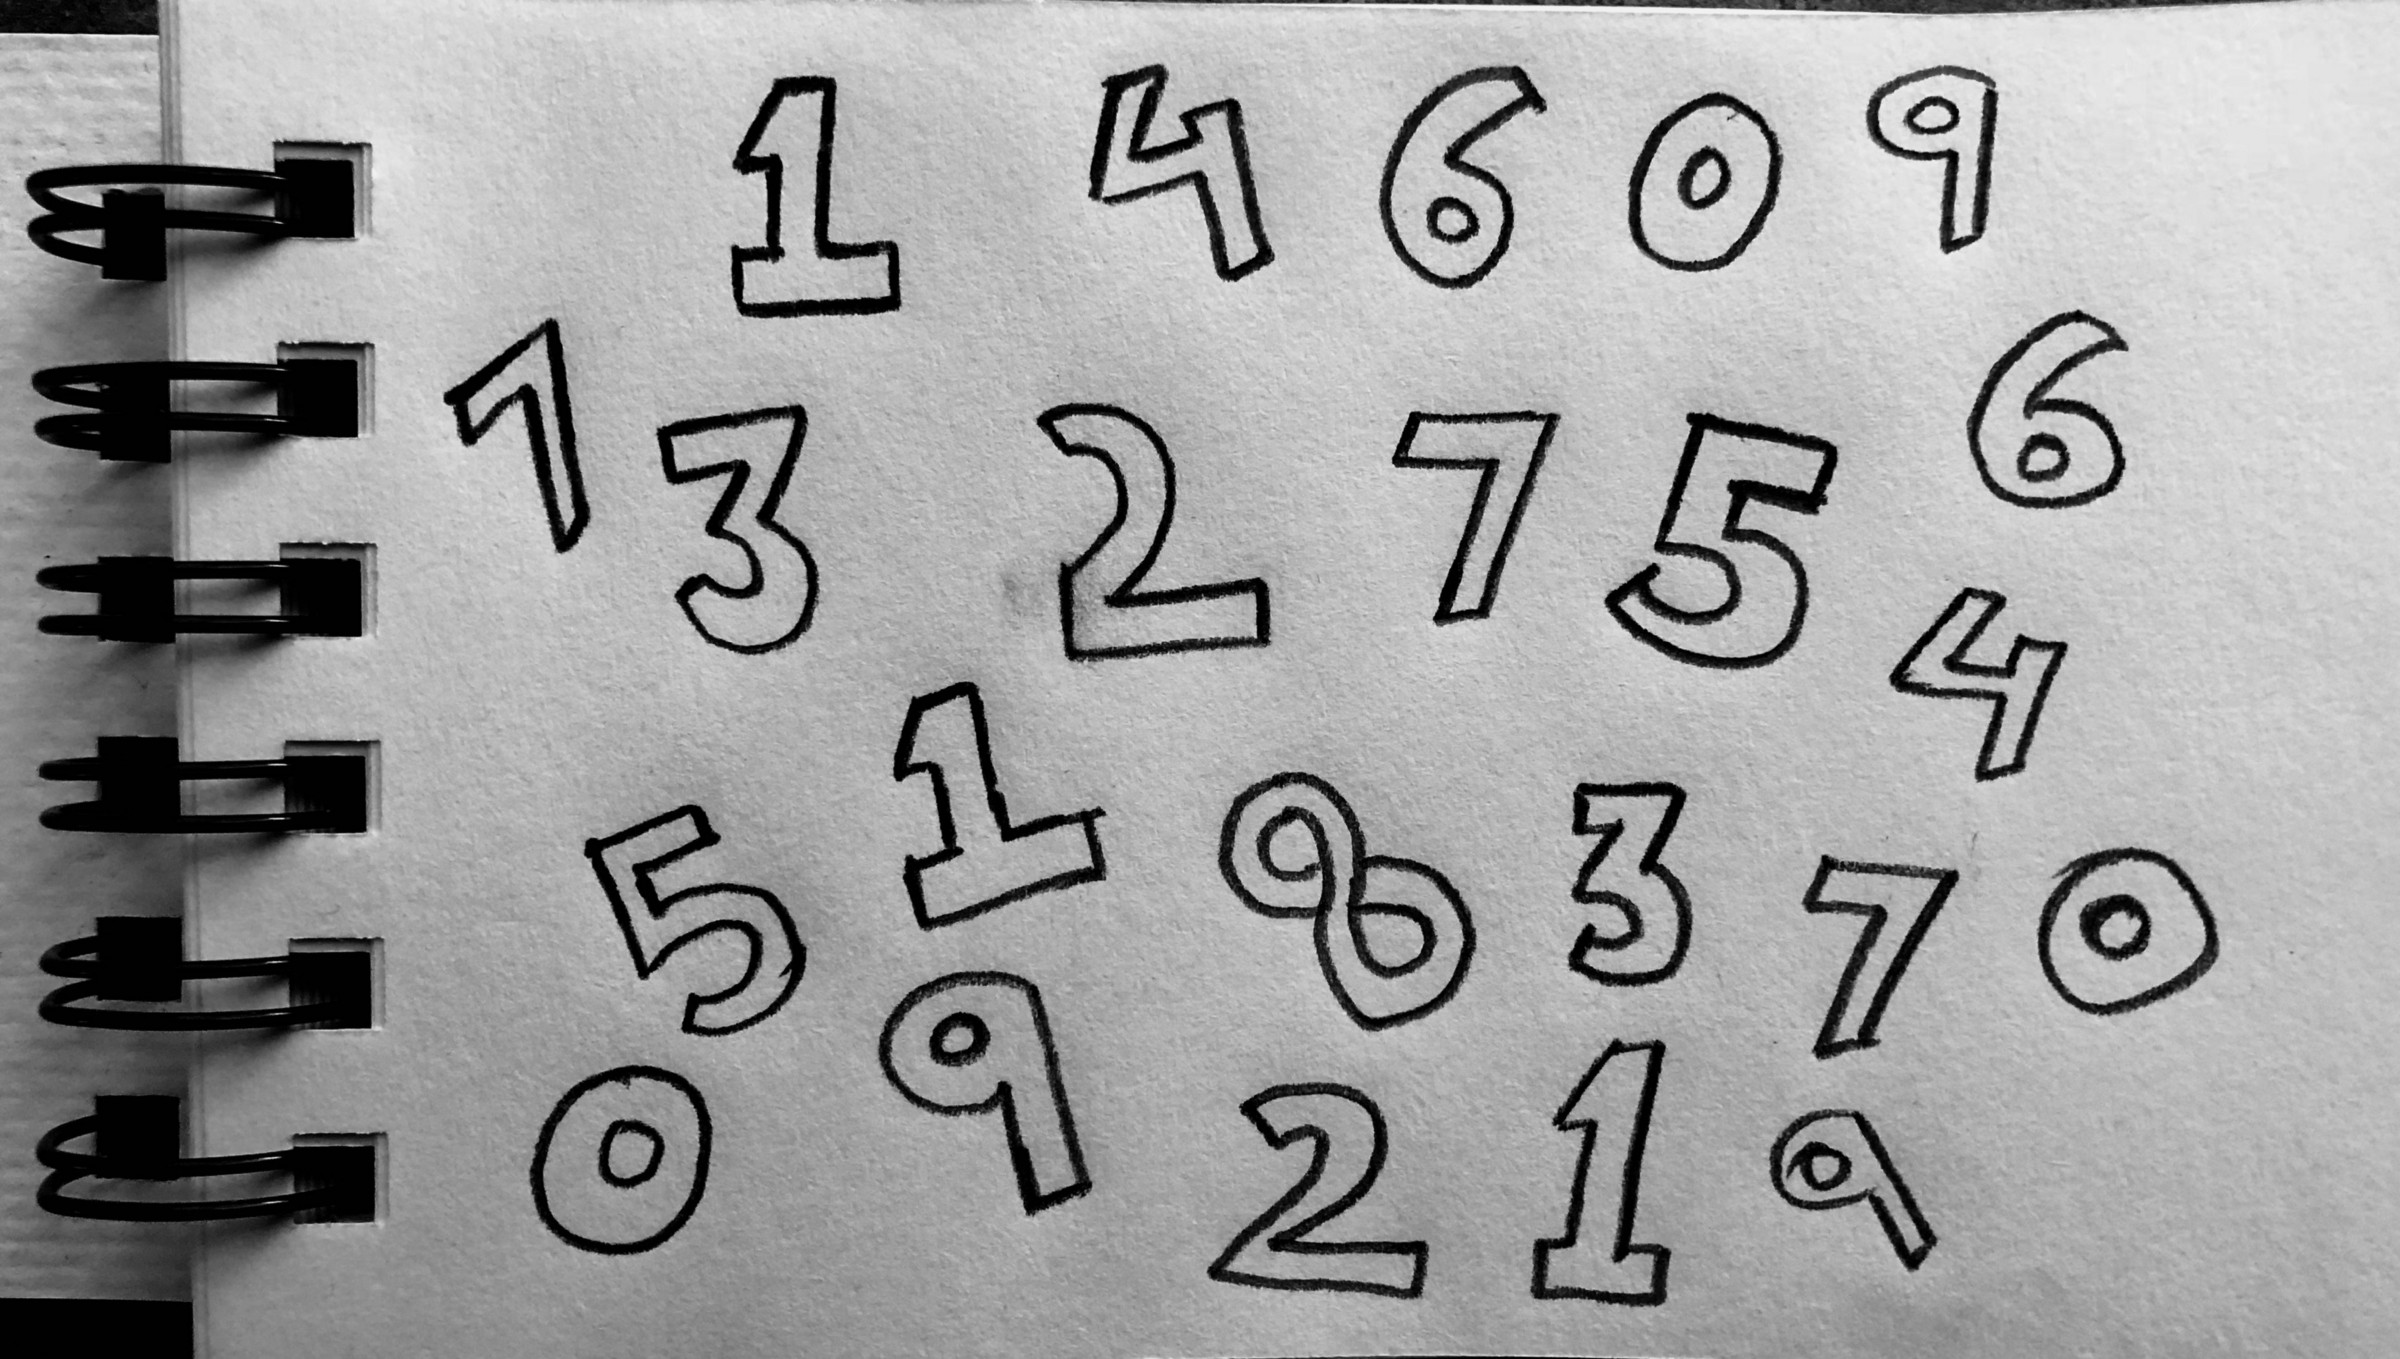 1 4 6 0 9
7 3 2 7 5 6
4
5 1 8 3 7 0
0 9 2 1 9